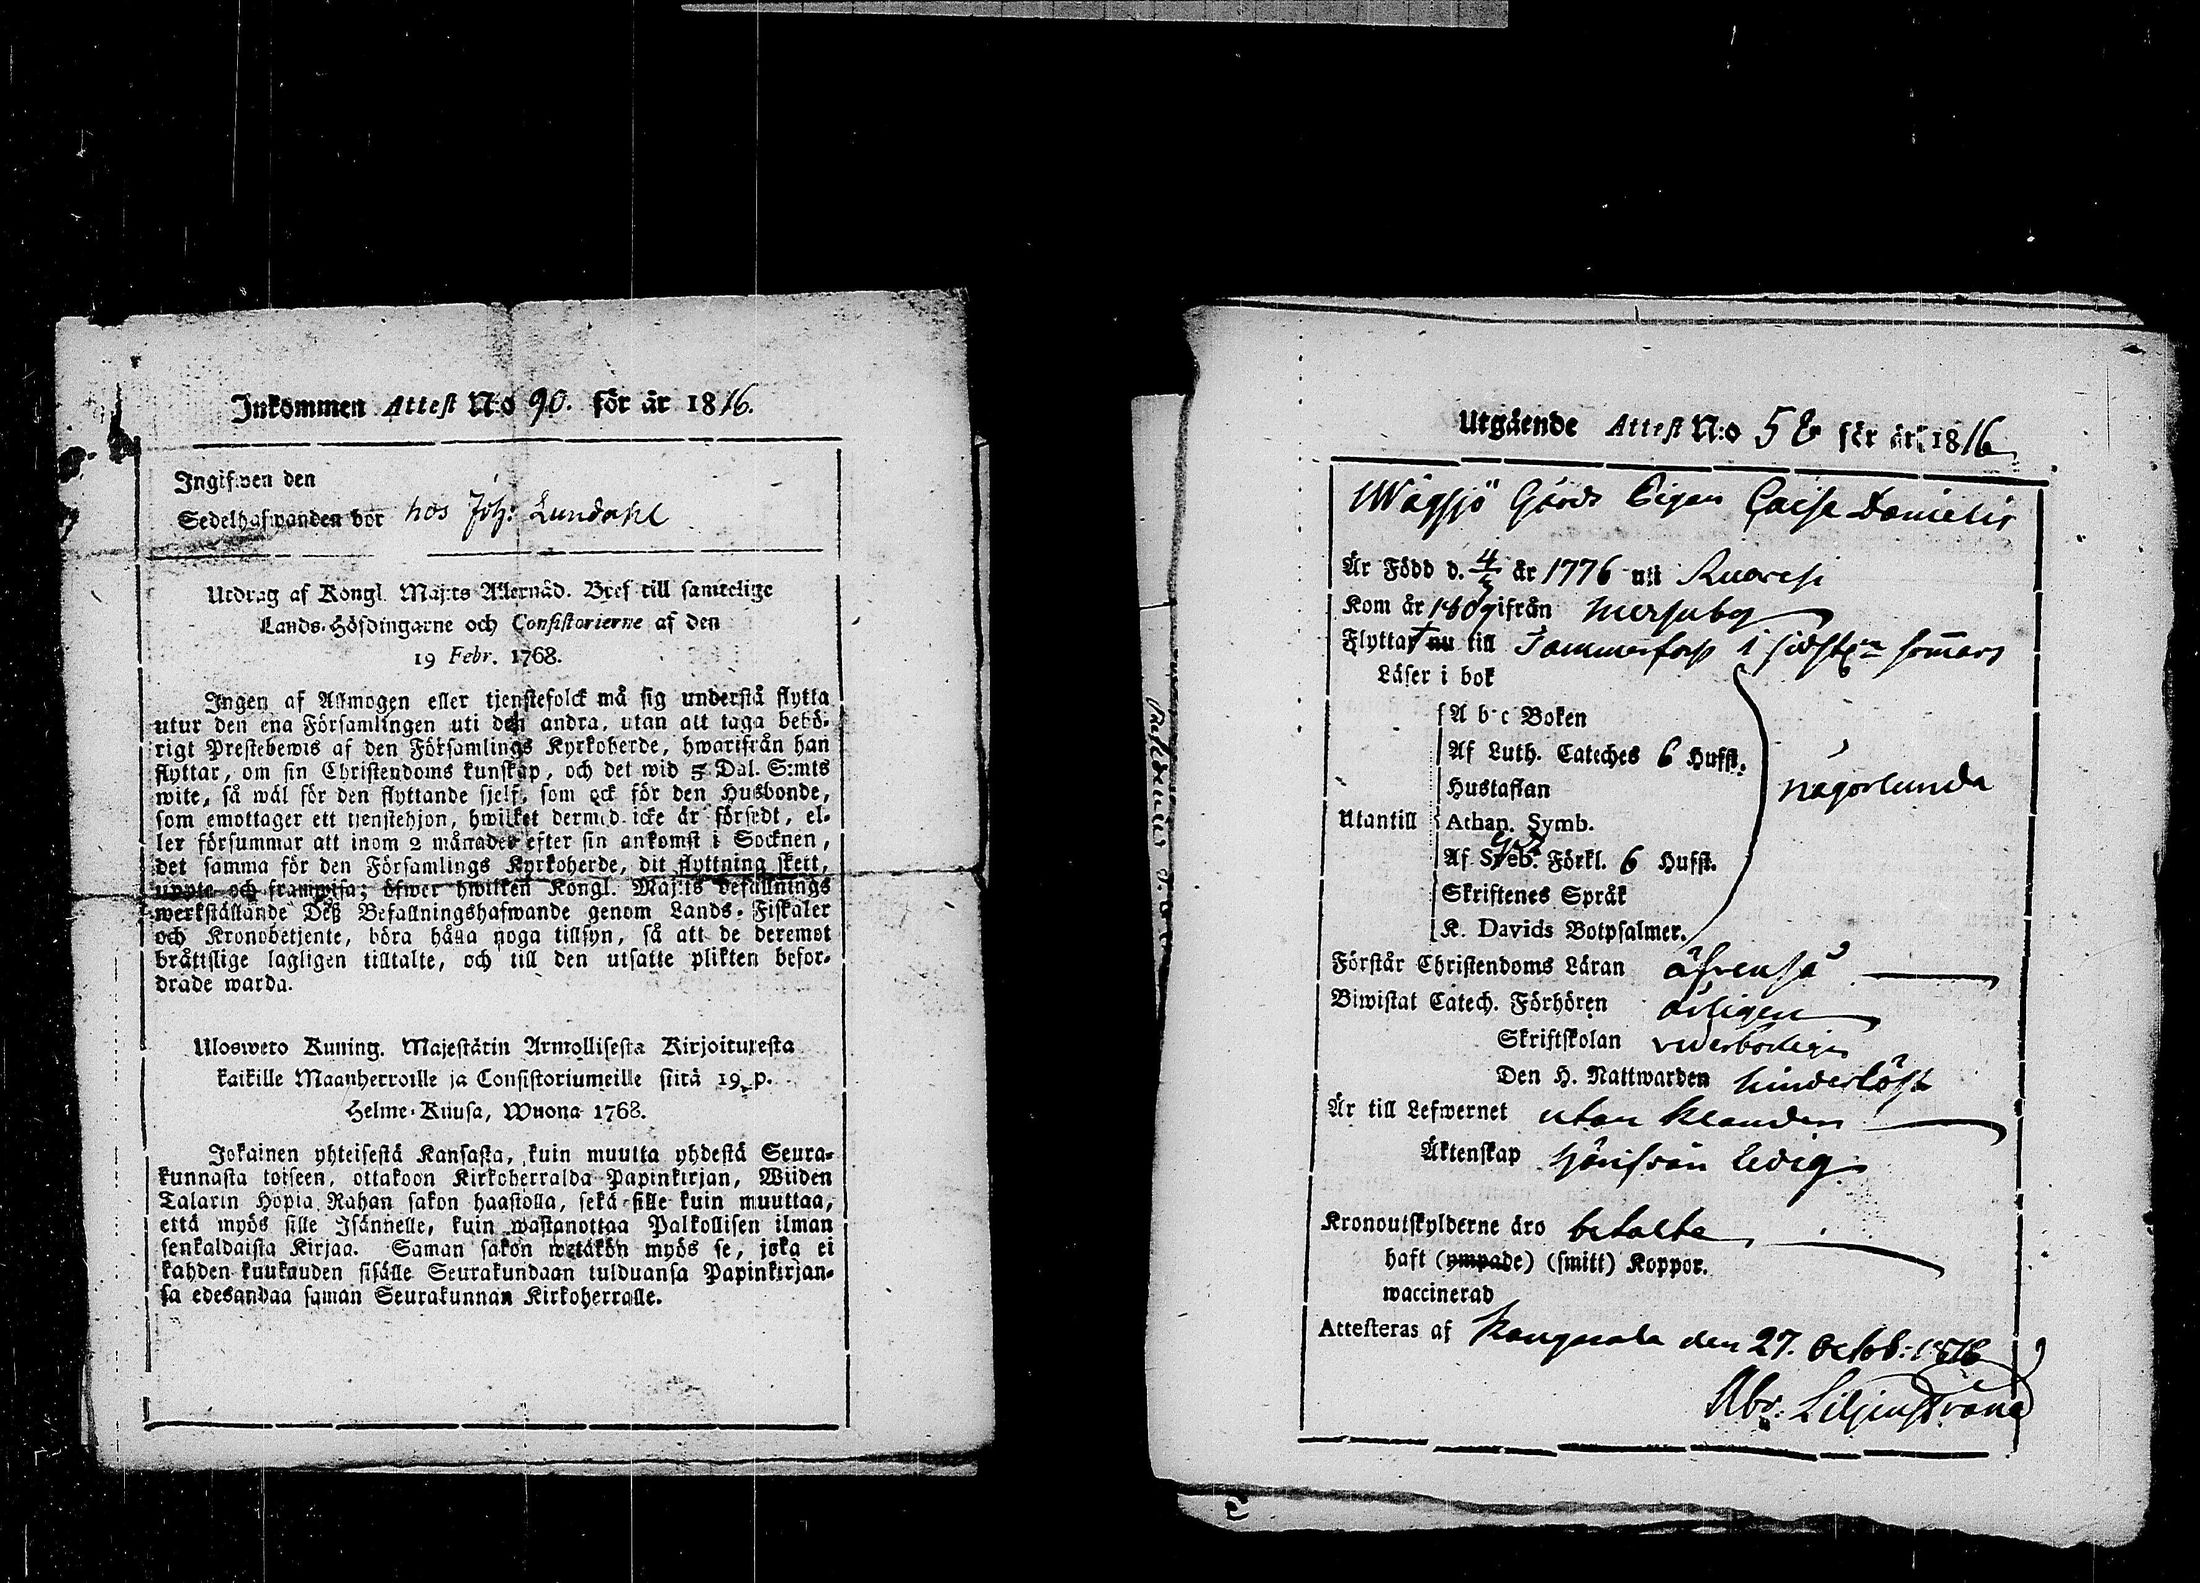 Inkommen Attest N:o 90. för år 1816.
Ingifwen den
Sedelhafwanden bor hos Joh: Lundahl
Utdrag af Kongl. Maj:ts Allernåd. Bref till samtelige
Lands-Höfdingarne och Consistorierne af den
19 Febr. 1768.
Ingen af Allmogen eller tjenstefolck må sig understå flytta
utur den ena Församlingen uti den andra, utan att taga behö-
rigt Prestebewis af den Församlings Kyrkoherde, hwarifrån han
flyttar, om sin Christendoms kunskap, och det wid 5 Dal. S:mts
wite, så wäl för den flyttande sjelf, som ock för den Husbonde,
som emottager ett tjenstehjon, hwilket dermed icke är försedt, el-
ler försummar att inom 2 månader efter sin ankomst i Socknen,
det samma för den Församlings Kyrkoherde, dit flyttning skett,
uppte och framwisa; öfwer hwilken Kongl. Maj:ts befallnings
werkställande Deß Befallningshafwande genom Lands-Fiskaler
och Kronobetjente, böra hålla noga tillsyn, så att de deremot
bråttslige lagligen tilltalte, och till den utsatte plikten befor-
drade warda.
Ulosweto Kuning. Majestätin Armollisesta Kirjoituxesta
kaikille Maanherroille ja Consistoriumeille siitä 19. p.
Helme-Kuusa, Wuona 1768.
Jokainen yhteisestä Kansasta, kuin muutta yhdestä Seura-
kunnasta toiseen, ottakoon Kirkoherralda Papinkirjan, Wiiden
Talarin Hopia Rahan sakon haastolla, sekä sille kuin muuttaa,
että myös sille Isännelle, kuin wastanottaa Palkollisen ilman
senkaldaista Kirjaa. Saman sakon wetäkön myös se, joka ei
kahden kuukauden sisälle Seurakundaan tulduansa Papinkirjan-
sa edesandaa saman Seurakunnan Kirkoherralle.
Utgående Attest N:o 58 för år 1816
Wägsjö Gårds Pigan Caisa Danielsdr
Är Född d. 4/5 år 1776 uti Ruovesi
Kom år 1809 ifrån Mersuby
Flyttat nu till Tammerfors i sidstn sommars
Läser i bok
A b c Boken
Af Luth. Cateches 6 Hufst.
Hustaflan
någorlunda
Utantill Athan. Symb.
Af Sveb. Förkl. 6 Hufst.
Skriftenes Språk
K. Davids Botpsalmer.
Förstår Christendoms Läran äfvenså
Biwistat Catech. Förhören årligen
Skriftskolan vederbörligen
Den H. Nattwarden hinderlöst
Är till Lefwernet utan klander
Äktenskap härifrån ledig
Kronoutskylderne äro betalte
haft (ympade) (smitt) Koppor.
waccinerad
Attesteras af Kangasala den 27. Octob: 1816
Abr. Liljenstrand